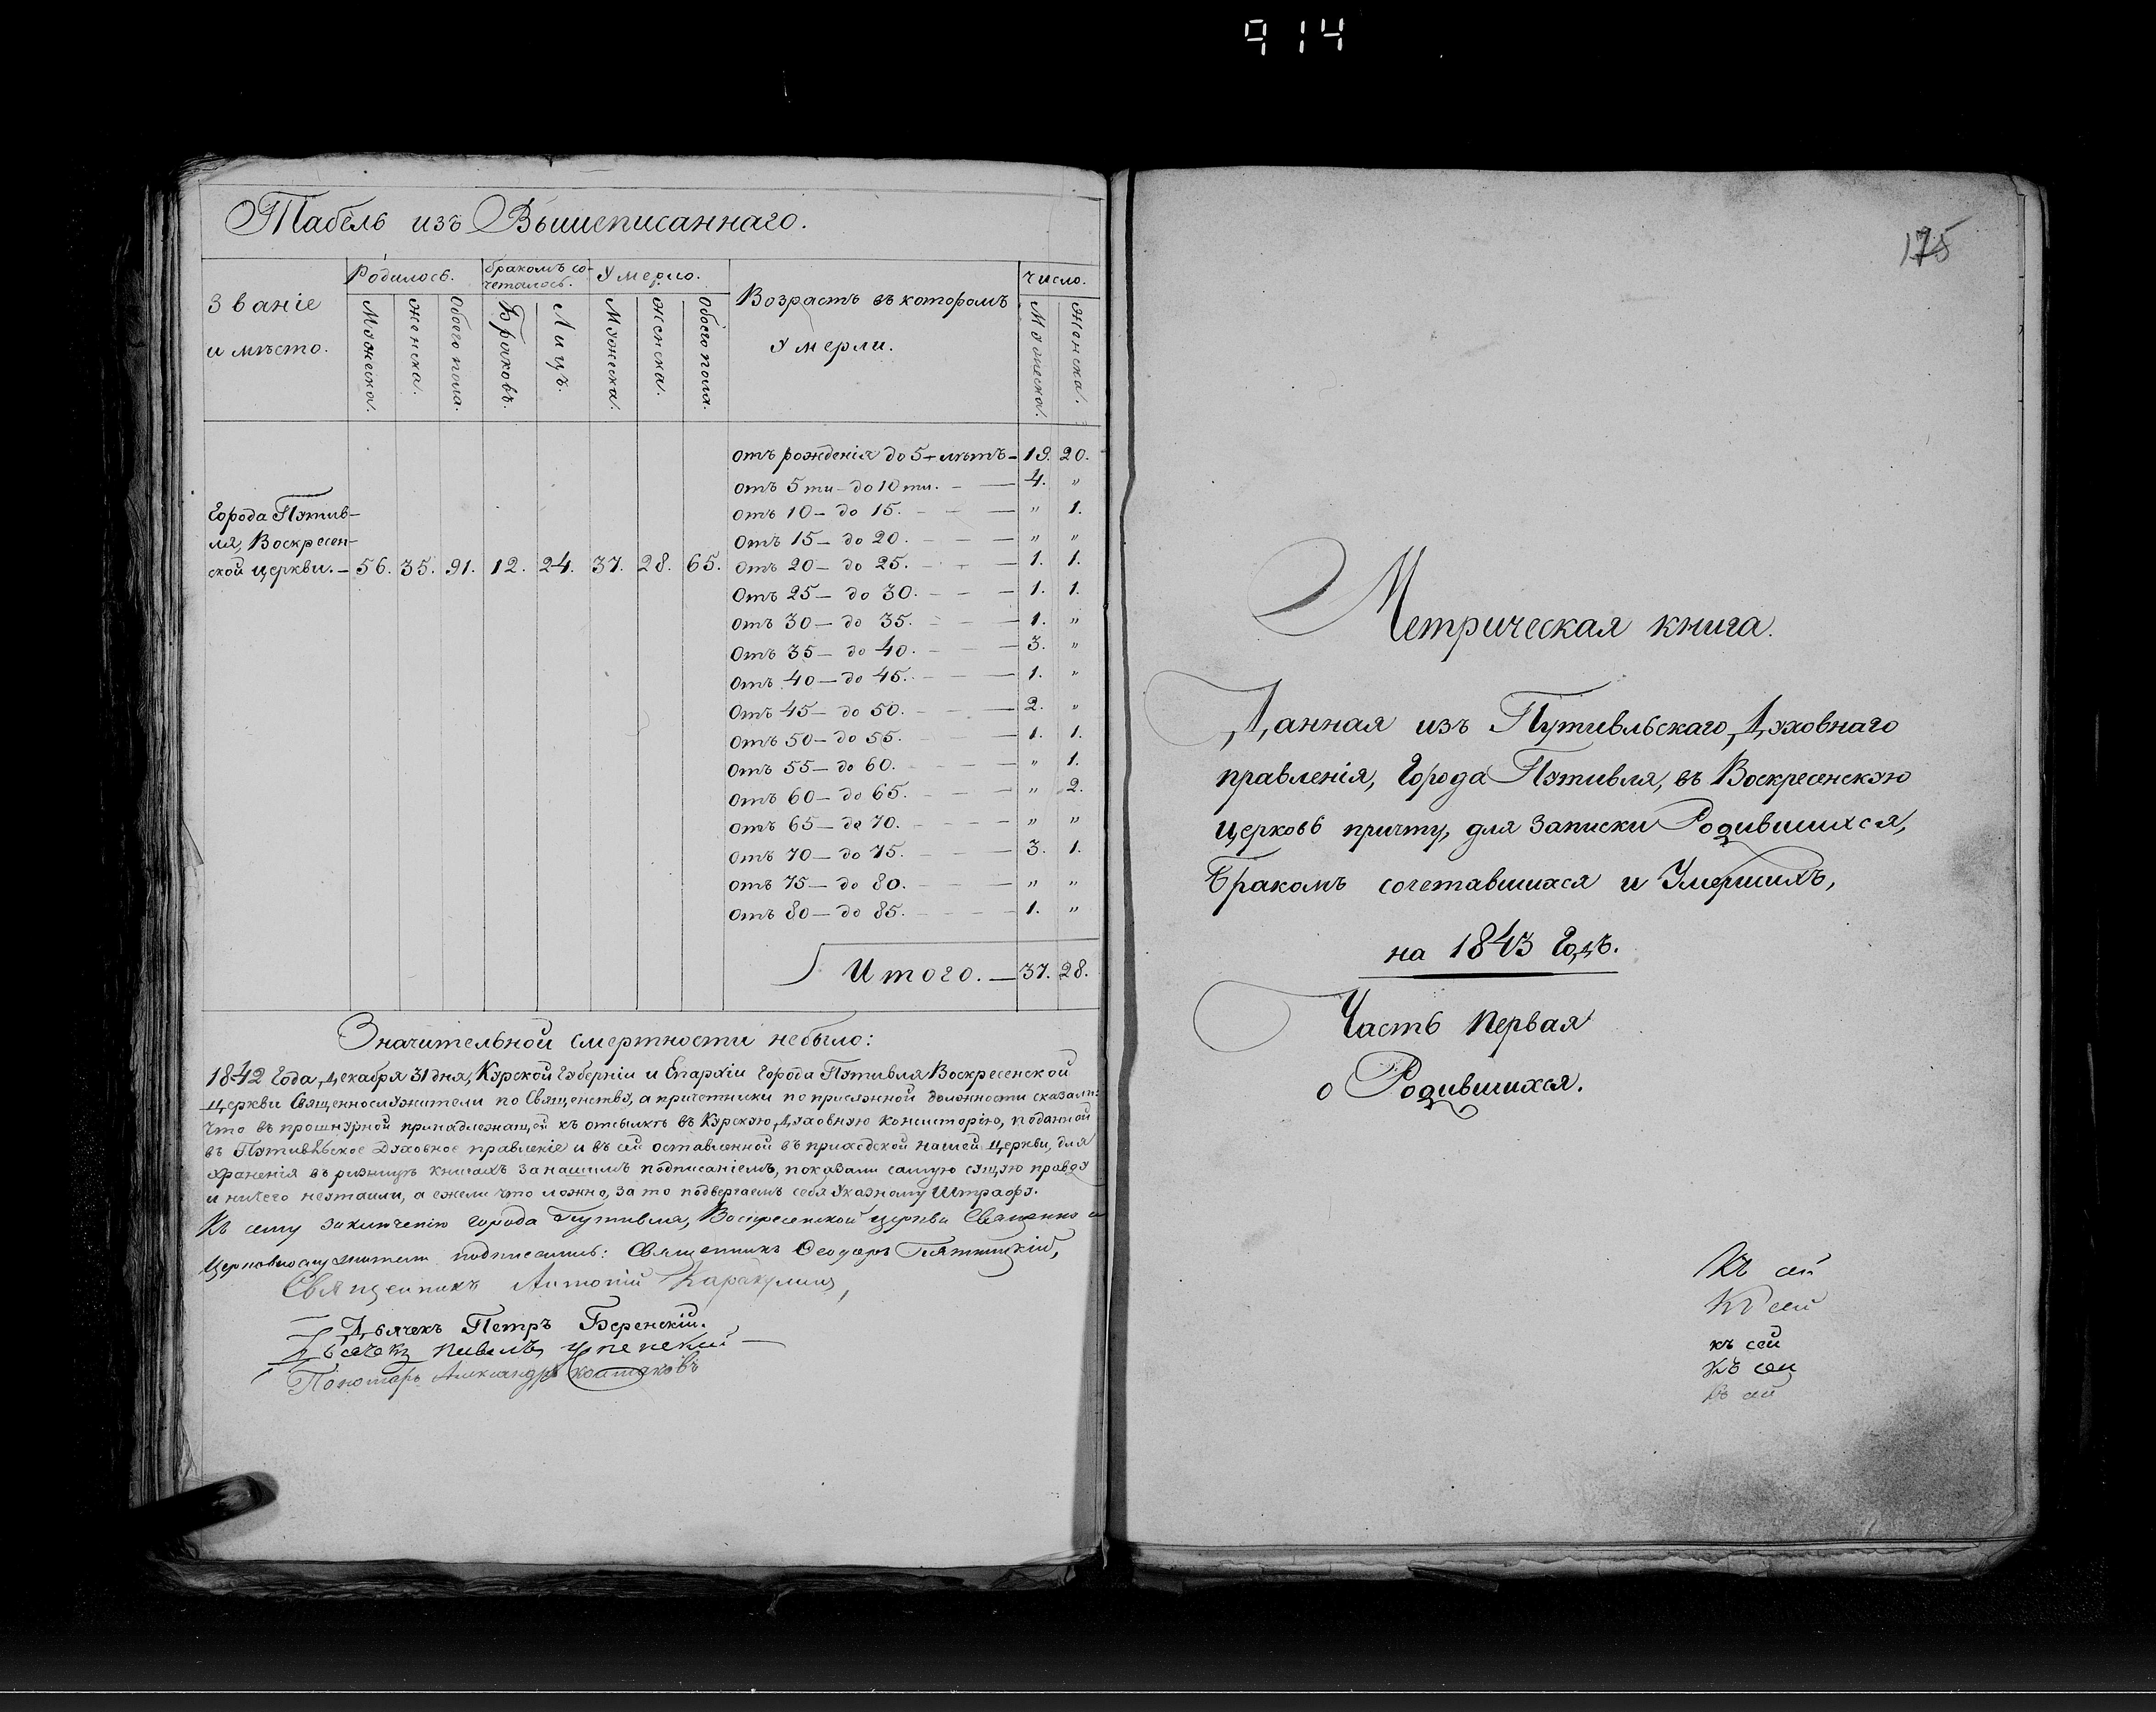 914
Табель изъ Вышеписаннаго.
Званіе и мѣсто.
Родилось.
Бракомъ сочеталось.
Умерло.
Возрастъ въ которомъ Умерли.
Число.
Мужеска.
Женска.
Обоего пола.
Браковъ.
Лицъ.
Мужеска.
Женска.
Обоего пола.
Мужеска.
Женска.
Города Путив-
ля, Воскресен-
ской церкви. — 56. 35. 91. 12. 24. 37. 28. 65.
Отъ рожденія до 5 лѣтъ — 19. 20.
Отъ 5ти — до 10ти. — 4. "
Отъ 10 — до 15. — " 1.
Отъ 15 — до 20. — " "
Отъ 20 — до 25. — 1. 1.
Отъ 25 — до 30. — 1. 1.
Отъ 30 — до 35. — 1. "
Отъ 35 — до 40. — 3. "
Отъ 40 — до 45. — 1. "
Отъ 45 — до 50. — 2. "
Отъ 50 — до 55. — 1. 1.
Отъ 55 — до 60. — " 1.
Отъ 60 — до 65. — " 2.
Отъ 65 — до 70. — " "
Отъ 70 — до 75. — 3. 1.
Отъ 75 — до 80. — " "
Отъ 80 — до 85. — 1. "
Итого. — 37. 28.
Значительной смертности небыло:
1842 Года, Декабря 31 дня, Курской Губерніи и Епархіи Города Путивля Воскресенской
церкви Священнослужители по Священству, а причетники по присяжной должности сказали:
Что въ прошнурной принадлежащей къ отсылкѣ въ Курскую, Духовную Консисторію, поданной
въ Путивльское Духовное правленіе и въ сей оставленной въ приходской нашей церкви, для
храненія въ ризницѣ книгахъ за нашимъ подписаніемъ, показали самую сущую правду
и ничего неутаили, а ежели что ложно, за то подвергаемъ себя Указному Штрафу.
Къ сему заключенію города Путивля, Воскресенской церкви Священно и
Церковнослужители подписались: Священникъ Феодоръ Пятницкій,
Священникъ Антоній
Дьячекъ Петръ Беренскій.
Дьячекъ Павелъ Успенский
Пономарь Александръ
175
Метрическая книга.
Данная изъ Путивльскаго, Духовнаго
правленія, Города Путивля, въ Воскресенскую
церковь причту, для Записки Родившихся,
Бракомъ сочетавшихся и Умершихъ,
на 1843 Годъ.
Часть Первая
о Родившихся.
Къ сей
Къ сей
къ сей
Къ сей
Къ сей